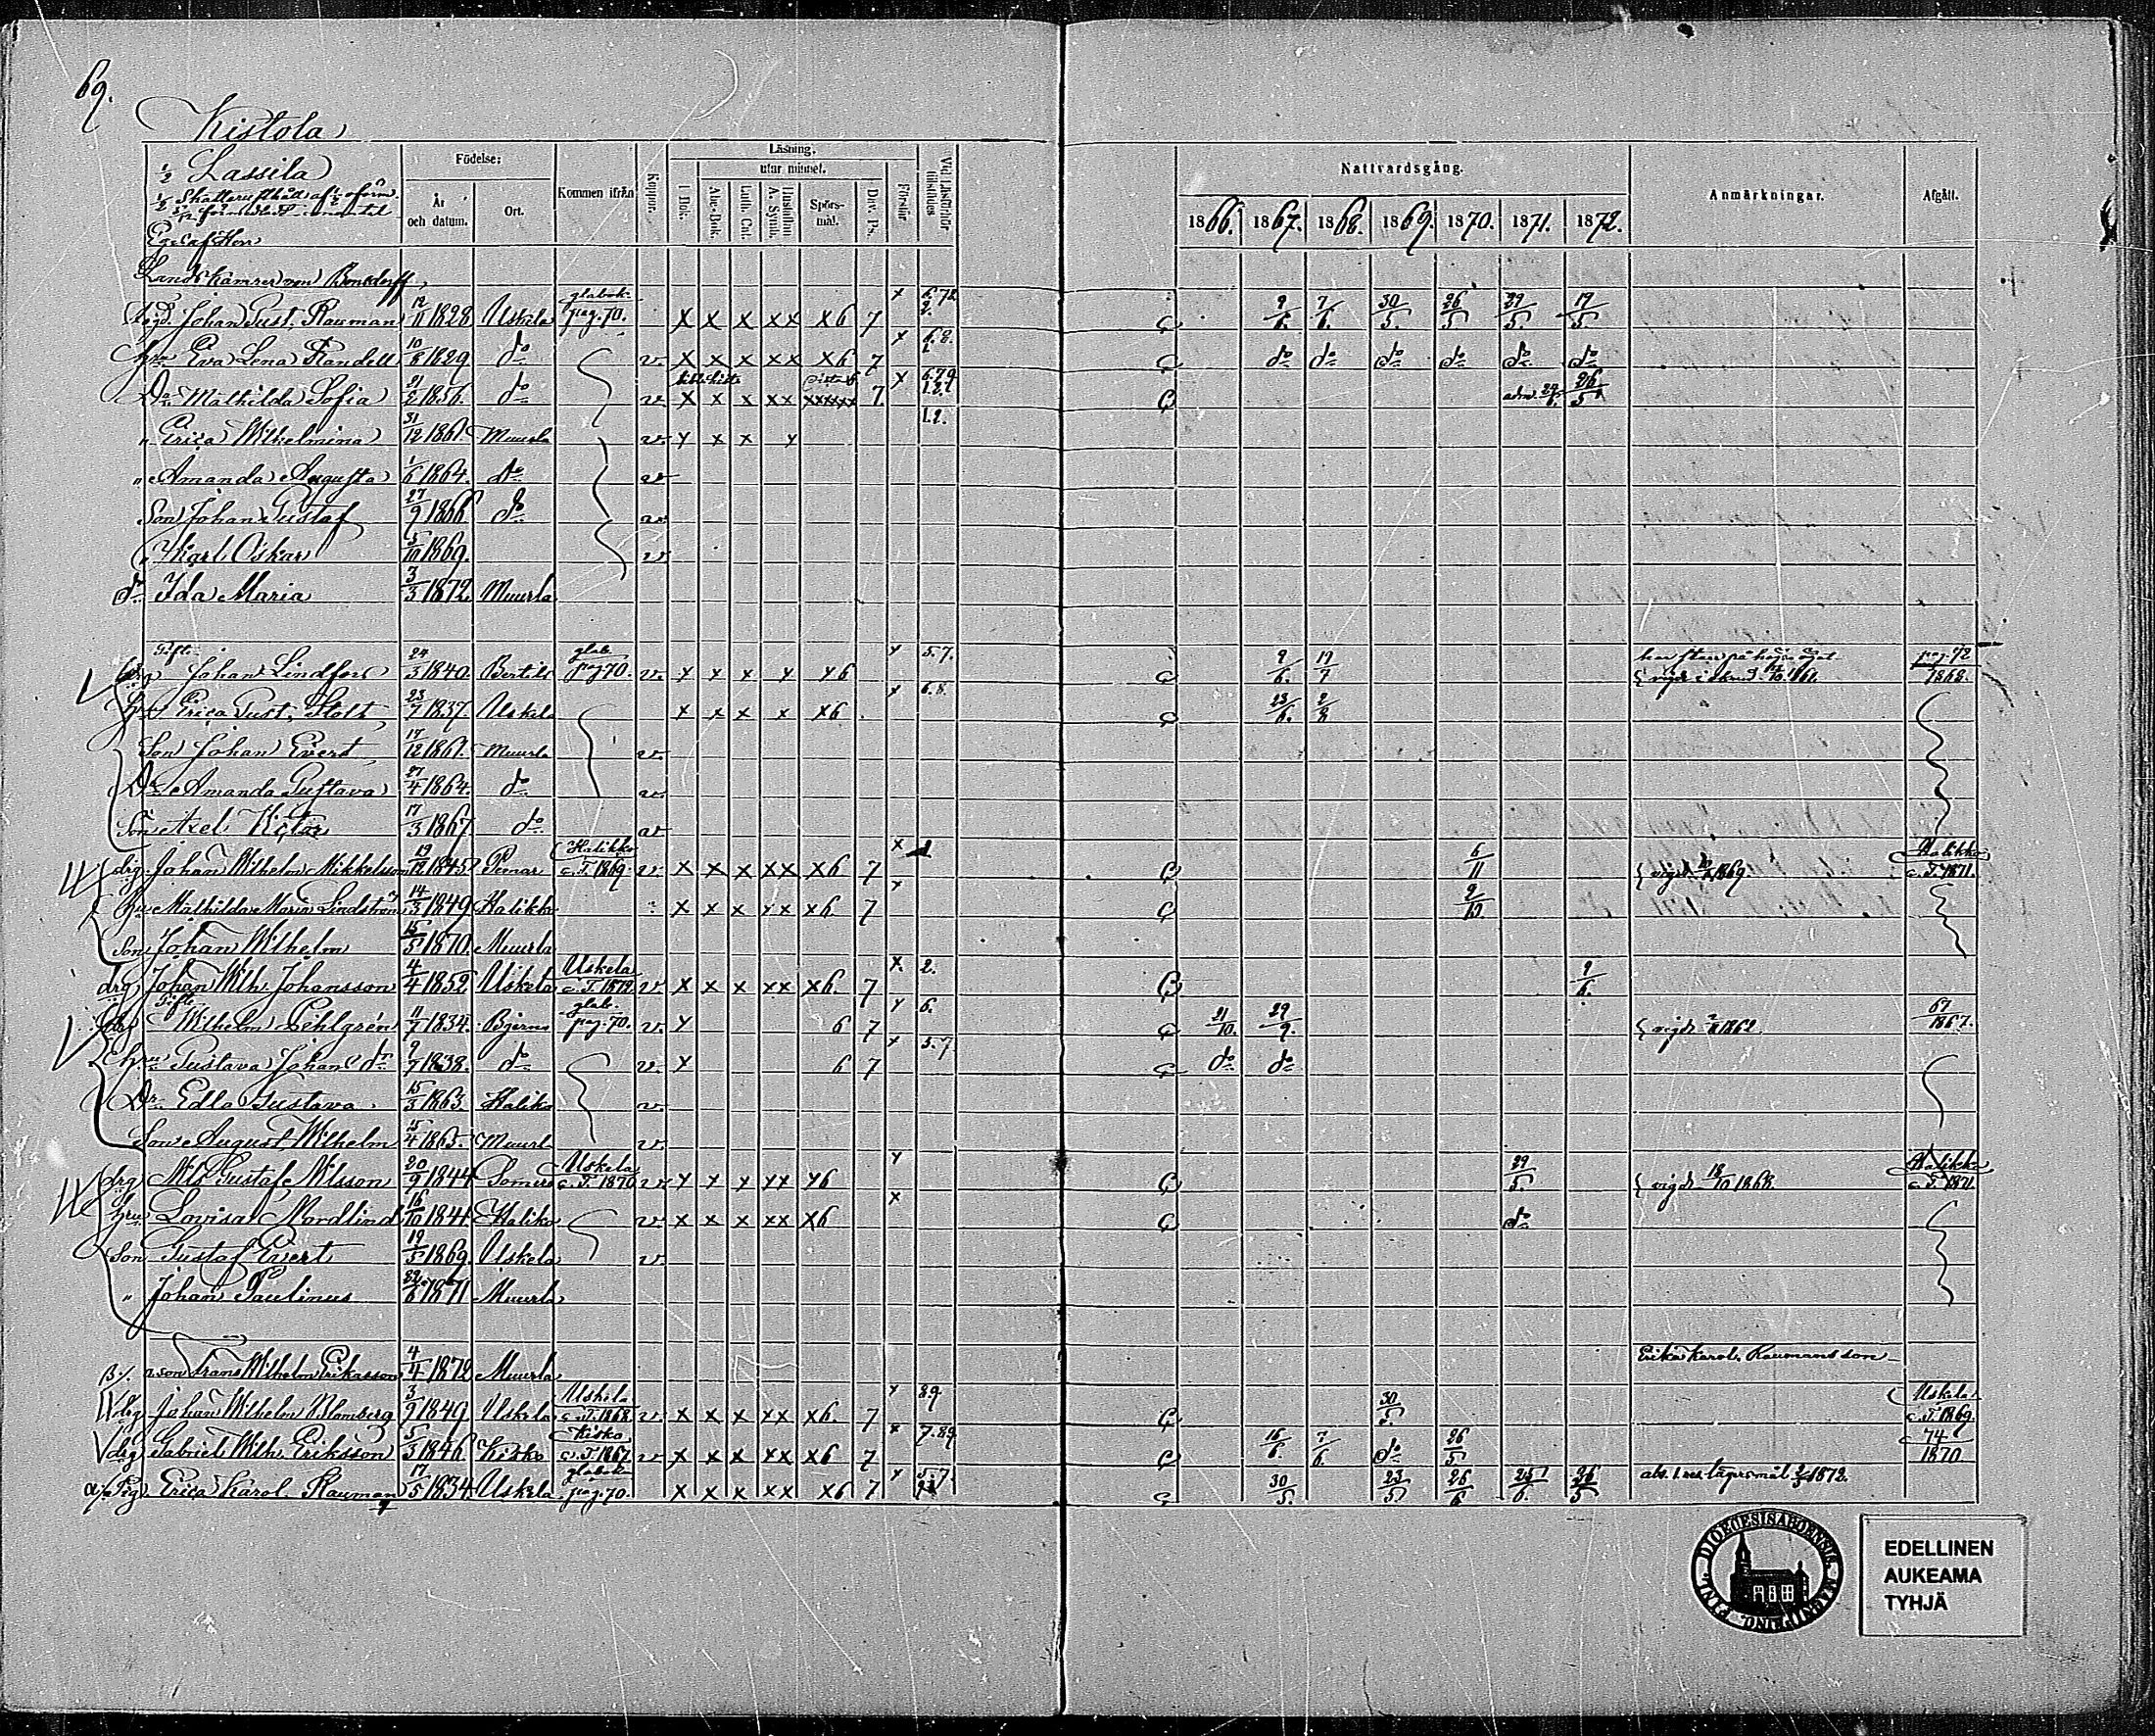 69.
Kistola
1/2 Lassila
1/2 Skatterusthåll af
Eges af Herr
Landskamrer von Bonsdorff
Födelse: År och datum. Ort. Kommen ifrån Koppor. Läsning. I Bok. utur minnet. Abc-Bok. Luth. Cat. A. Symb. Hustaflan Spörs-mål. Dav. Ps. Förstår Vid Läsförhör tillstädes
Nattvardsgång. 1866. 1867. 1868. 1869. 1870. 1871. 1872. Anmärkningar. Afgått.
Johan Gust. Rauman 12/11 1828 Uskela glabok. pag. 70. x x x xx x6 7 x 9/6. 7/6. 30/5. 26/5 29/5. 19/5
hru Eva Lena Randell 10/8 1829 do v. x x x xx x6 7 x 6.8. do do do do do do
Dr Mathilda Sofia 21/2 1856. do v. x x x xx xxxxxx 7. x adm. 26/5
" Erica Wilhelmina 31/12 1861. Muurla v. x x x x 1.2.
" Amanda Augusta 1/6 1864. do v
Son Johan Gustaf 27/9 1866 do v
" Karl Oskar 5/10 1869. v
do Ida Maria 3/3 1872 Muurla
Gifte drg Johan Lindfors 24/3 1840. Bertils glab. pag 70. v. x x x x x6 x 5.7. 9/6. 19/7 pag. 72 1868.
hru Erica Gust. Stolt 23/7 1837. Uskela x x x x x6 x 6.8. 23/6. 2/8
Son Johan Evert 17/12 1861. Muurla v.
Dr Amanda Gustava 27/4 1864. do v.
Son Axel Victor 17/3 1867. do v
drg. Johan Wilhelm Mikkelsson 19/12 1845 Pemar Halikko c.T. 1869. v x x x xx x6 7 x 6/11 vigd 1869. Halikko c.T. 1871.
hru Mathilda Maria Lindström 14/3 1849 Halikko x x x xx x6 7 x 9/10.
Son Johan Wilhelm 15/5 1870. Muurla
drg Johan Wilh. Johansson 4/4 1852 Uskela Uskela c.T. 1872 v x x x xx x6. 7 x. 2. 9/6.
Gifte drg Wilhelm Pehlgrén 11/7 1834. Bjerno glab. pag. 70. v. x 6 7 x 6. 21/10. 29/9. vigd 1862. 67 1867.
hru Gustava Johan. do 9/7 1838. do v. x 6 7 x 5.7. do do
Dr. Edla Gustava. 15/3 1863. Haliko v.
Son August Wilhelm 15/4 1865. Muurl v.
drg Nils Gustaf Nilsson 20/9 1844 Somero Uskela c.T. 1870 v x x x xx x6 x 29/5. vigd 18/10 1868. Halikko c.T. 1871
hru Lovisa Nordlind 16/10 1841. Haliko v x x x xx x6 x do
Son Gustaf Evert 19/5 1869. Uskela v.
" Johan Paulinus 22/6 1871 Muurla
o. son Frans Wilhelm Eriksson 4/11 1872 Muurla Erika Karol. Raumans son
drg Johan Wilhelm Blomberg 3/9 1849. Uskela Uskela c.T. 1868. v x x x xx x6 7 x 8.9 30/5. Uskela c.T. 1869.
drg Gabriel Wilh. Eriksson 5/3 1846. Kisko Kisko c.T. 1867 v x x x xx x6 7 x 7.89 16/6. 7/6. do 26/5 74 1870
Pig. Erica Karol. Rauman 17/5 1834. Uskela glabok. pag. 70. x x x xx x6 7 x 5.7. 30/5. 23/5 26/6 26/5 abs. lägersmål 1872.
DIOECESIS ABOENSIS
EDELLINEN
AUKEAMA
TYHJÄ